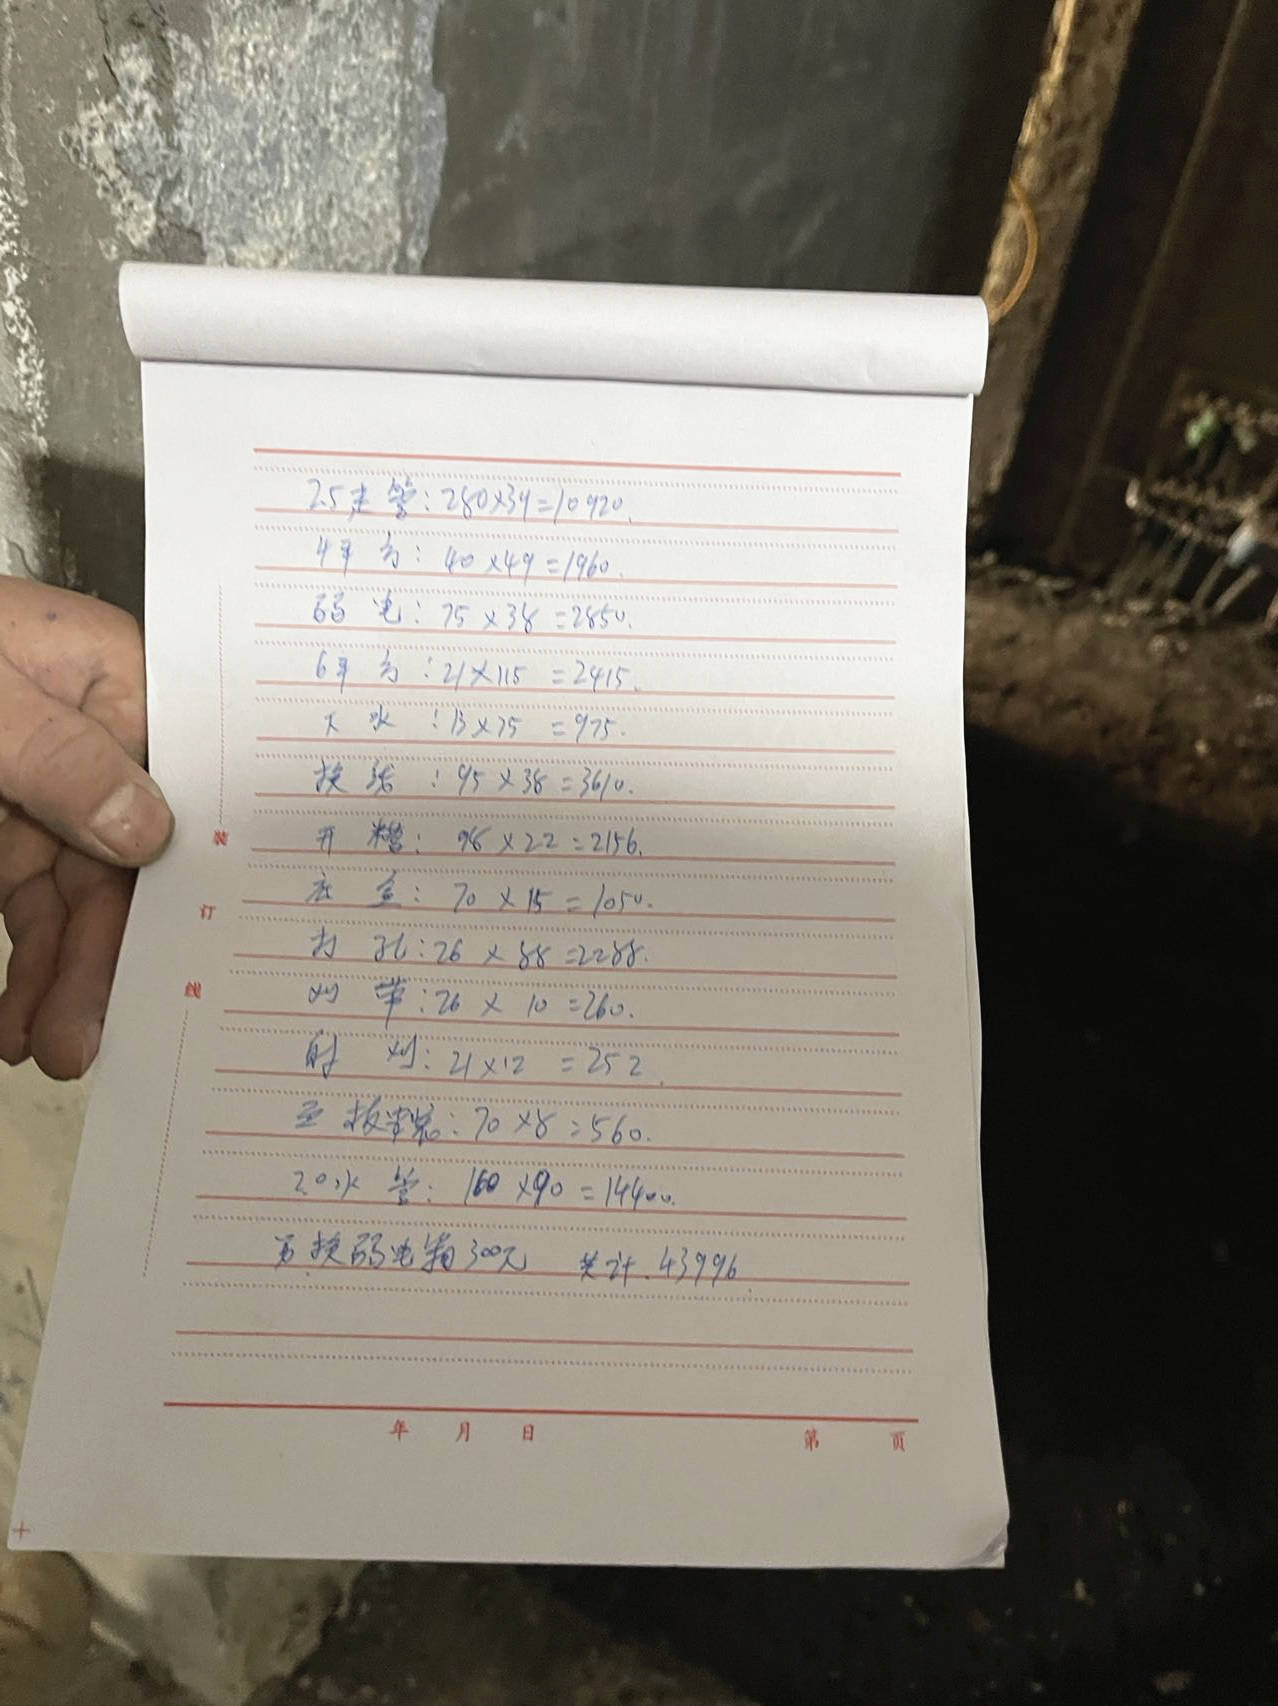 2.5走管:280×39=10920.
4平方:40×49=1960.
弱电:75×38=2850.
6平方:21×115=2415.
下水:13×75=975.
换线:95×38=3610.
开槽:98×22=2156.
底盒:70×15=1050.
打孔:26×88=2288.
:26×10=260.
:21×12=252.
:70×8=560.
2.0水管:160×90=14400.
另换弱电箱300元 共计.43996
装
订
线
年 月 日 第 页